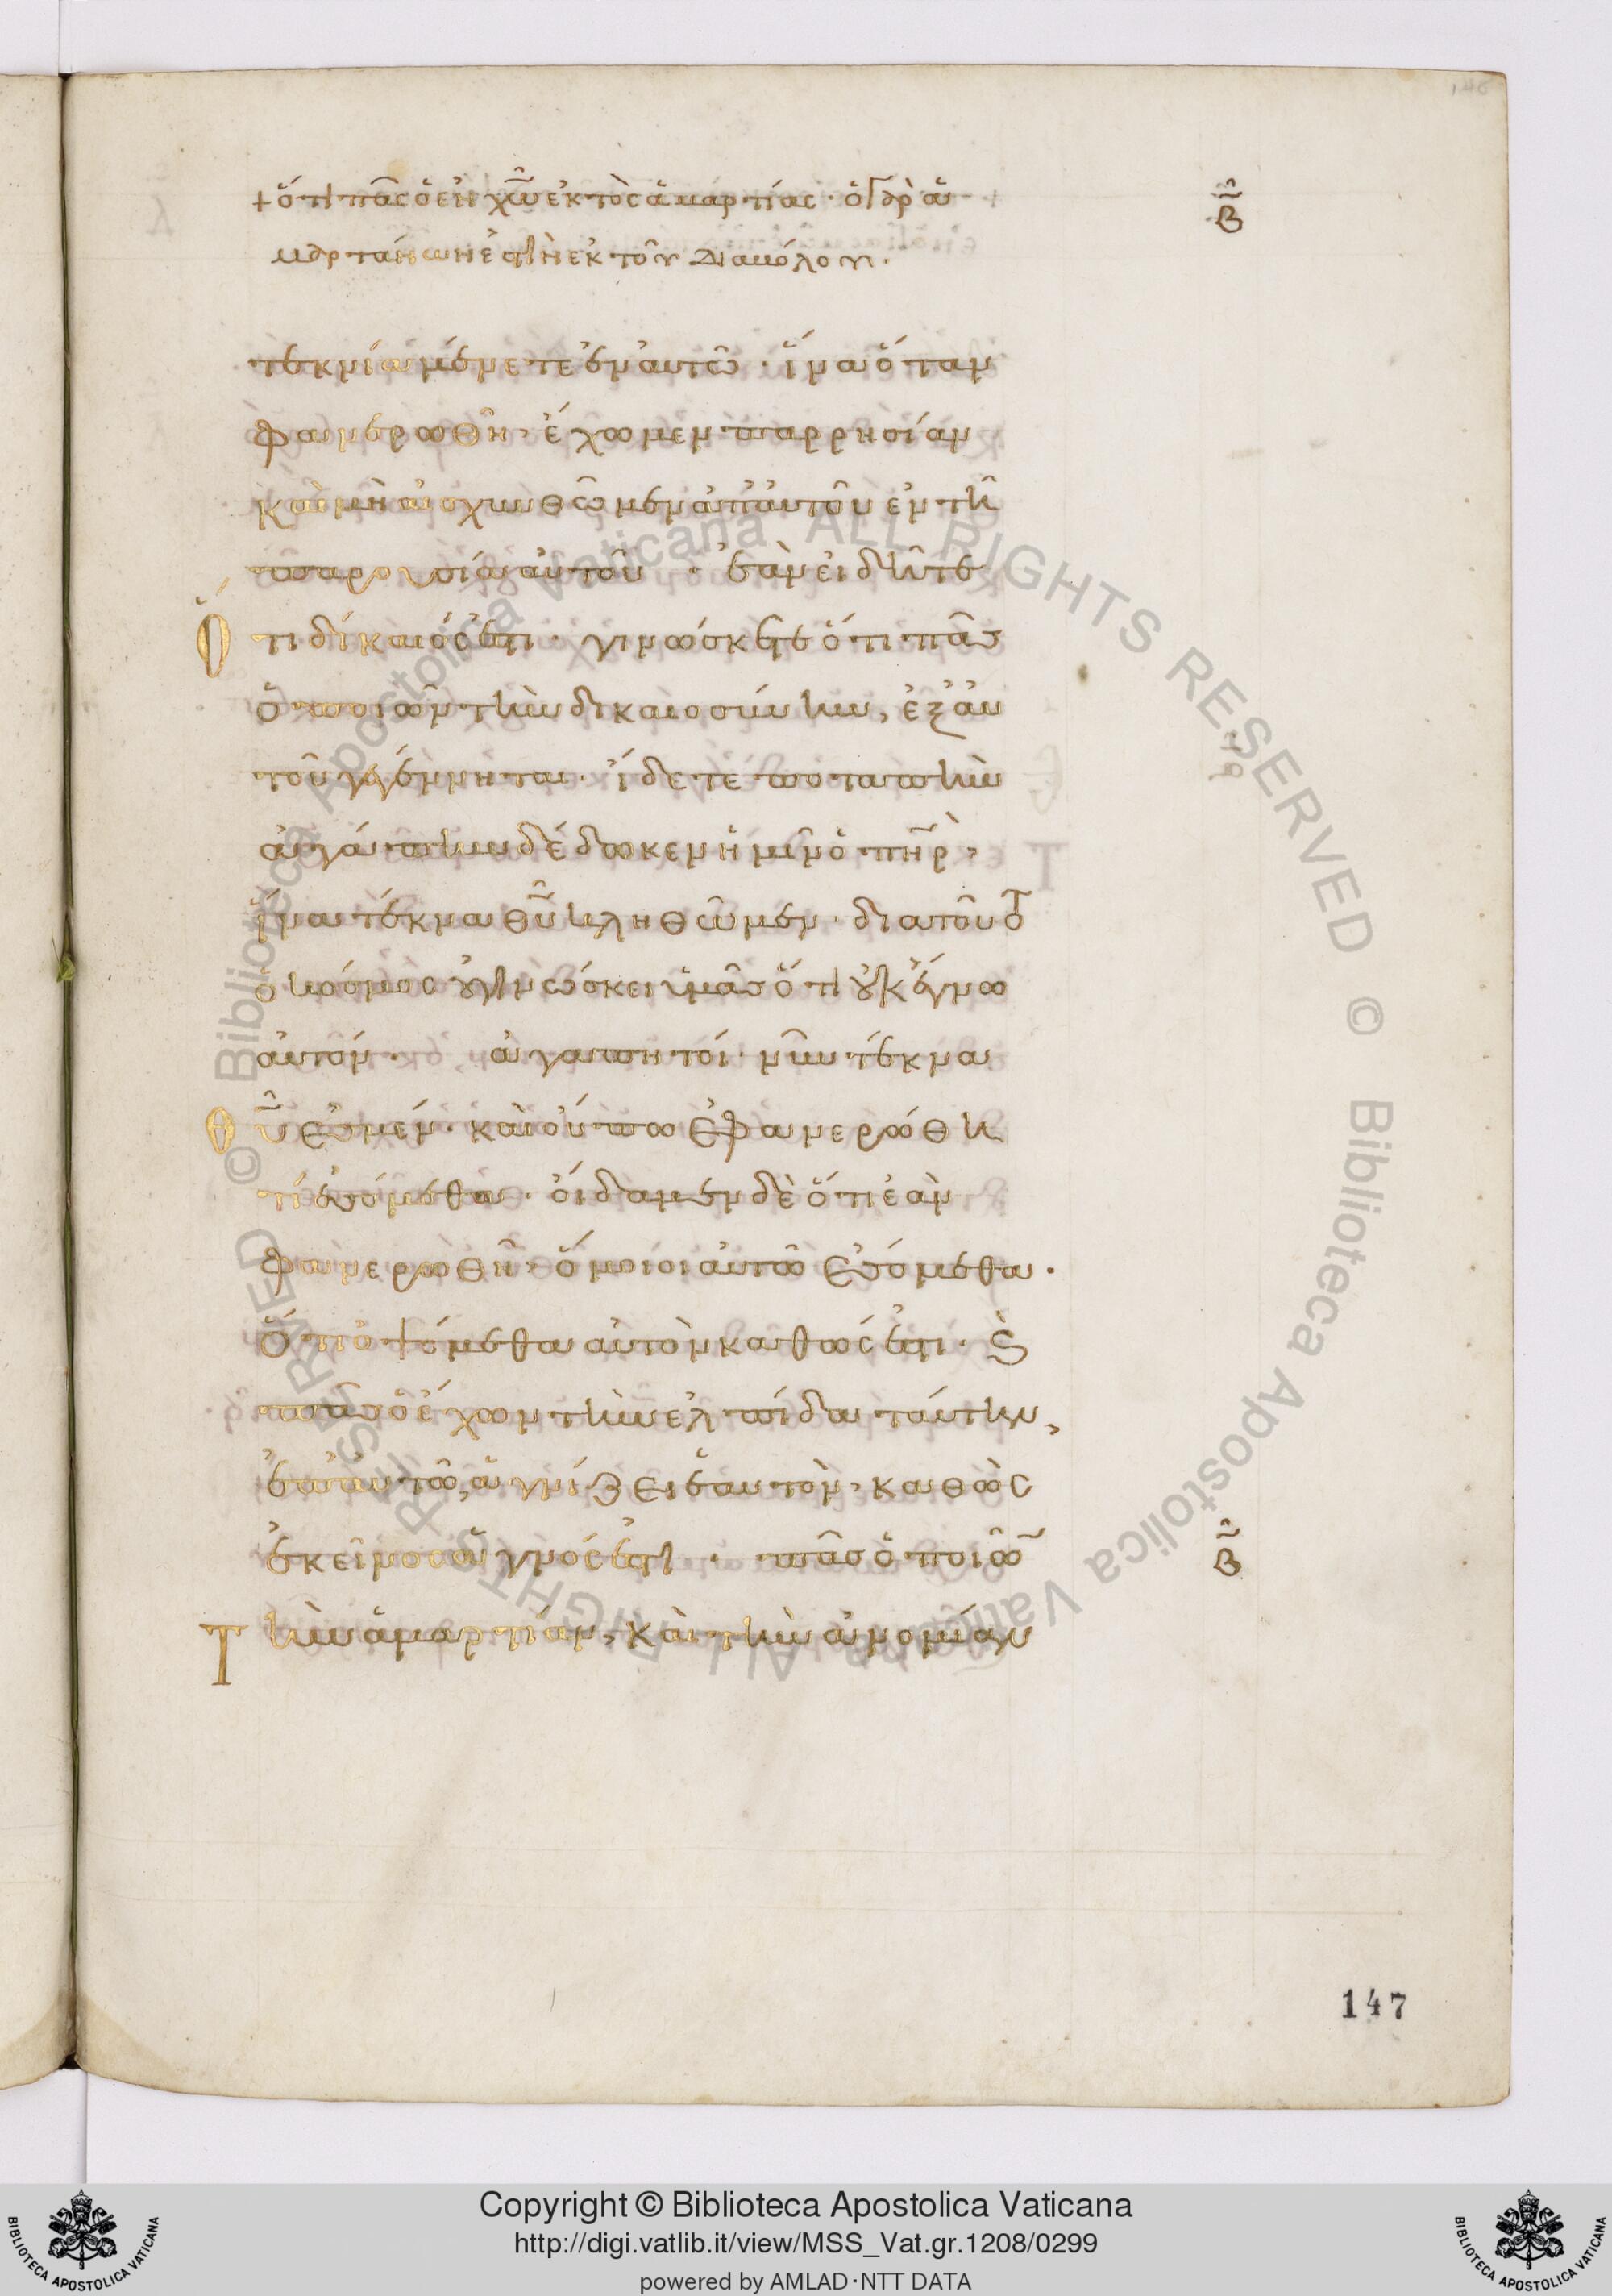 β
+ ὅτι πᾶς ὁ ἐν χῶ ἐκτὸς ἁμαρτίας· ὁ γὰρ ἁ
μαρτάνων ἐστὶν ἐκ τοῦ διαβόλου.
τεκνία μένετε ἐν αὐτῶ· ἵνα ὅταν
φανερωθῆ, ἔχωμεν παρρησίαν
καὶ μὴ αἰσχυνθῶμεν ἀπ' αὐτοῦ ἐν τῆ
παρουσία αὐτοῦ · ἐὰν εἰδῆτε
ὅτι δίκαιός ἐστι· γινώσκετε ὅτι πᾶς
ὁ ποιῶν τὴν δικαιοσύνην, ἐξ αὐ
τοῦ γεγέννηται· ἴδετε ποταπὴν
ἀγάπην δέδωκεν ἡμῖν ὁ πηρ,
ἵνα τέκνα θυ κληθῶμεν· διατοῦτο
ὁ κόσμος οὐ γινώσκει ὑμᾶς ὅτι οὐκ ἔγνω
αὐτόν · ἀγαπητοί νῦν τέκνα
θυ ἐσμέν· καὶ οὔπω ἐφανερώθη
τί ἐσόμεθα· οἴδαμεν δὲ ὅτι ἐὰν
φανερωθῆ· ὅμοιοι αὐτῶ ἐσόμεθα·
ὅτι ὀψόμεθα αὐτὸν καθώς ἐστι· καὶ
πᾶς ὁ ἔχων τὴν ἐλπίδα ταύτην,
ἐπ' αὐτῶ, ἁγνίζει ἑαυτὸν, καθὼς
ἐκεῖνος ἁγνός ἐστι · πᾶς ὁ ποιῶν
β
τὴν ἁμαρτίαν, καὶ τὴν ἀνομίαν
147
© Biblioteca Apostolica Vaticana ALL RIGHTS RESERVED © Biblioteca Apostolica Vaticana ALL RIGHTS RESERVED
Copyright © Biblioteca Apostolica Vaticana
http://digi.vatlib.it/view/MSS_Vat.gr.1208/0299
powered by AMLAD·NTT DATA
BIBLIOTECA APOSTOLICA VATICANA
BIBLIOTECA APOSTOLICA VATICANA